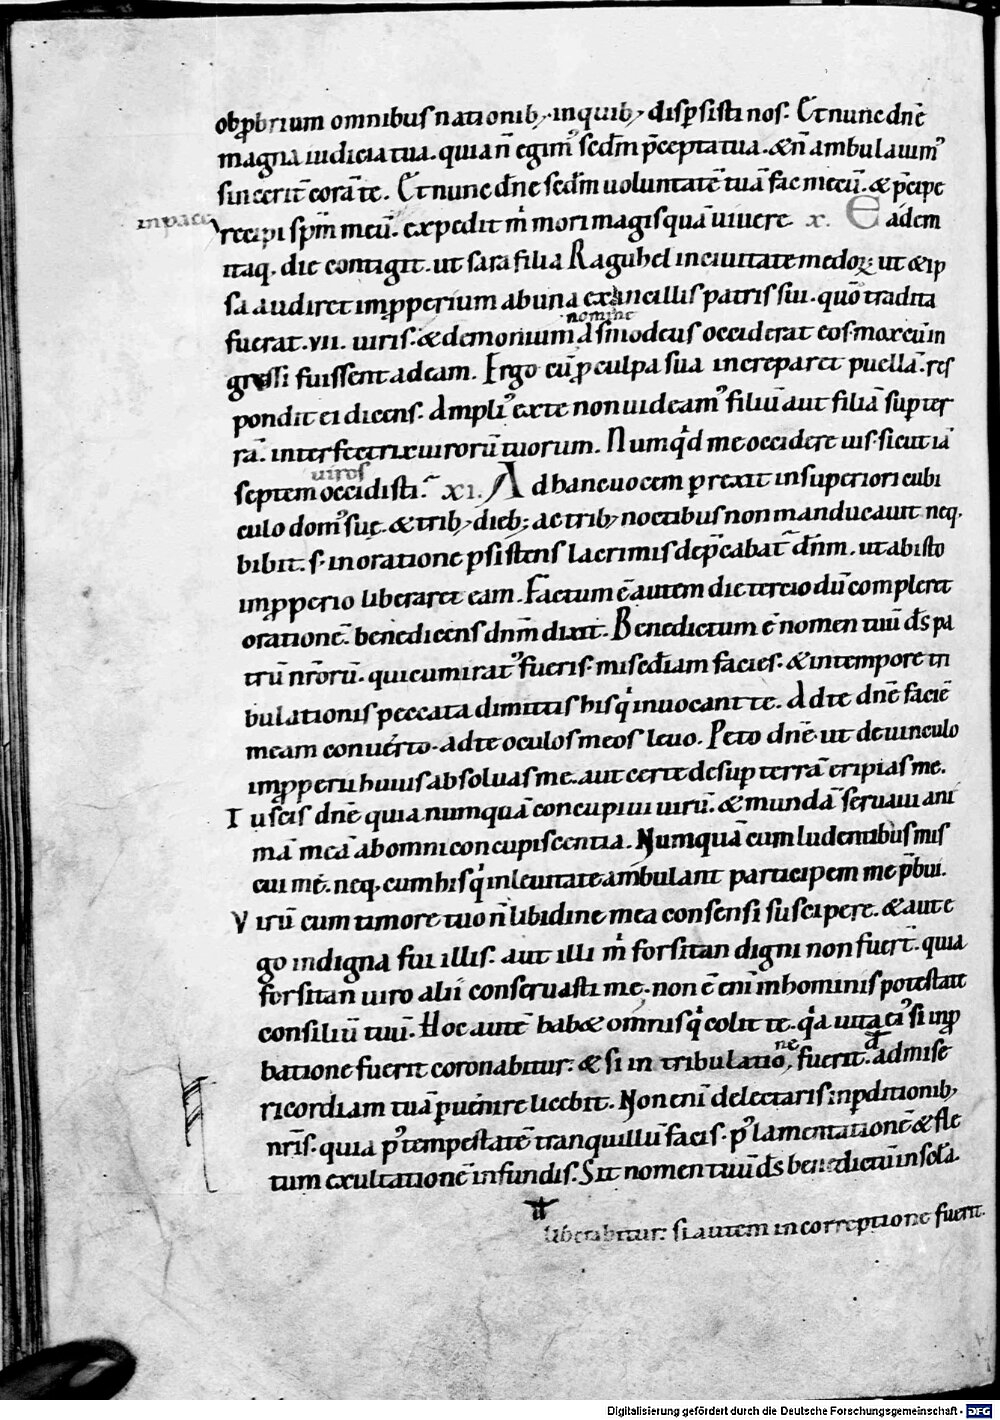 obp̱brium omnibus nationib; inquib; disp̱sisti nos. Et nunc dn̄e
magna iudicia tua. quia n̄ egim᾽ scdm̄ p̄cepta tua. & n̄ ambulauim᾽
sincerit̄ corā te. Et nunc dn̄e scdm̄ uoluntatē tuā fac mecū. & p̄cipe
in pace
recipi sp̄m meū. expedit m̄ mori magis quā uiuere. x. Eadem
itaq. die contigit. ut sara filia Raguhel in ciuitate medoꝝ ut & ip
sa audiret imp̱perium ab una ex ancillis patris sui. quō tradita
nomine
fuerat .vii. uiris. & demonium Asmodeus occiderat eos. mox cū in
gressi fuissent ad eam. Ergo cū p̱ culpa sua increparet puellā. res
pondit ei dicens. Ampli᾽ ex te non uideam᾽ filiū aut filiā sup ter
rā. interfectrix uirorū tuorum. Numq̇d me occidere uis. sicut iā
uiros
septem occidisti. xi. Ad hanc uocem p̱rexit in superiori cubi
culo dom᾽ suę. & trib; dieb; ac trib; noctibus non manducauit neq.
bibit. s. in oratione p̱sistens lacrimis dep̄cabat̄ dn̄m. ut ab isto
imp̱perio liberaret eam. Factum ē autem die tercio dū compleret
orationē. benedicens dn̄m dixit. Benedictum ē nomen tuū ds̄ pa
trū nr̄orū. qui cum irat᾽ fueris. misc̄diam facies. & in tempore tri
bulationis peccata dimittis his q̇ inuocant te. Ad te dn̄e faciē
meam conuerto. ad te oculos meos leuo. Peto dn̄e. ut de uinculo
imp̱perii huius absoluas me. aut certe desup terrā eripias me.
Tu scis dn̄e quia numquā concupiui uirū. & mundā seruaui ani
mā meā ab omni concupiscentia. Numquā cum ludentibus mis
cui me. neq. cum his q̇ in leuitate ambulant participem me p̄bui.
Virū cum timore tuo n̄ libidine mea consensi suscipere. & aut e
go indigna fui illis. aut illi m̄ forsitan digni non fuer̄t. quia
forsitan uiro alii conseruasti me. non ē enī in hominis potestate
consiliū tuū. Hoc autē hab& omnis q̇ colit te. q̇a uita ei᾽ si in p̱
batione fuerit coronabitur: & si in tribulatione, fuerit. ad mise
ricordiam tuā p̱uenire licebit. Non enī delectaris in p̱ditionib;
nr̄is. quia p᾽ tempestatē tranquillū facis. p᾽ lamentationē & fle
tum exultationē infundis. Sit nomen tuū ds̄ benedictū in sc̄la.
liberabitur: si autem in correptione fuerit.
Digitalisierung gefördert durch die Deutsche Forschungsgemeinschaft - DFG